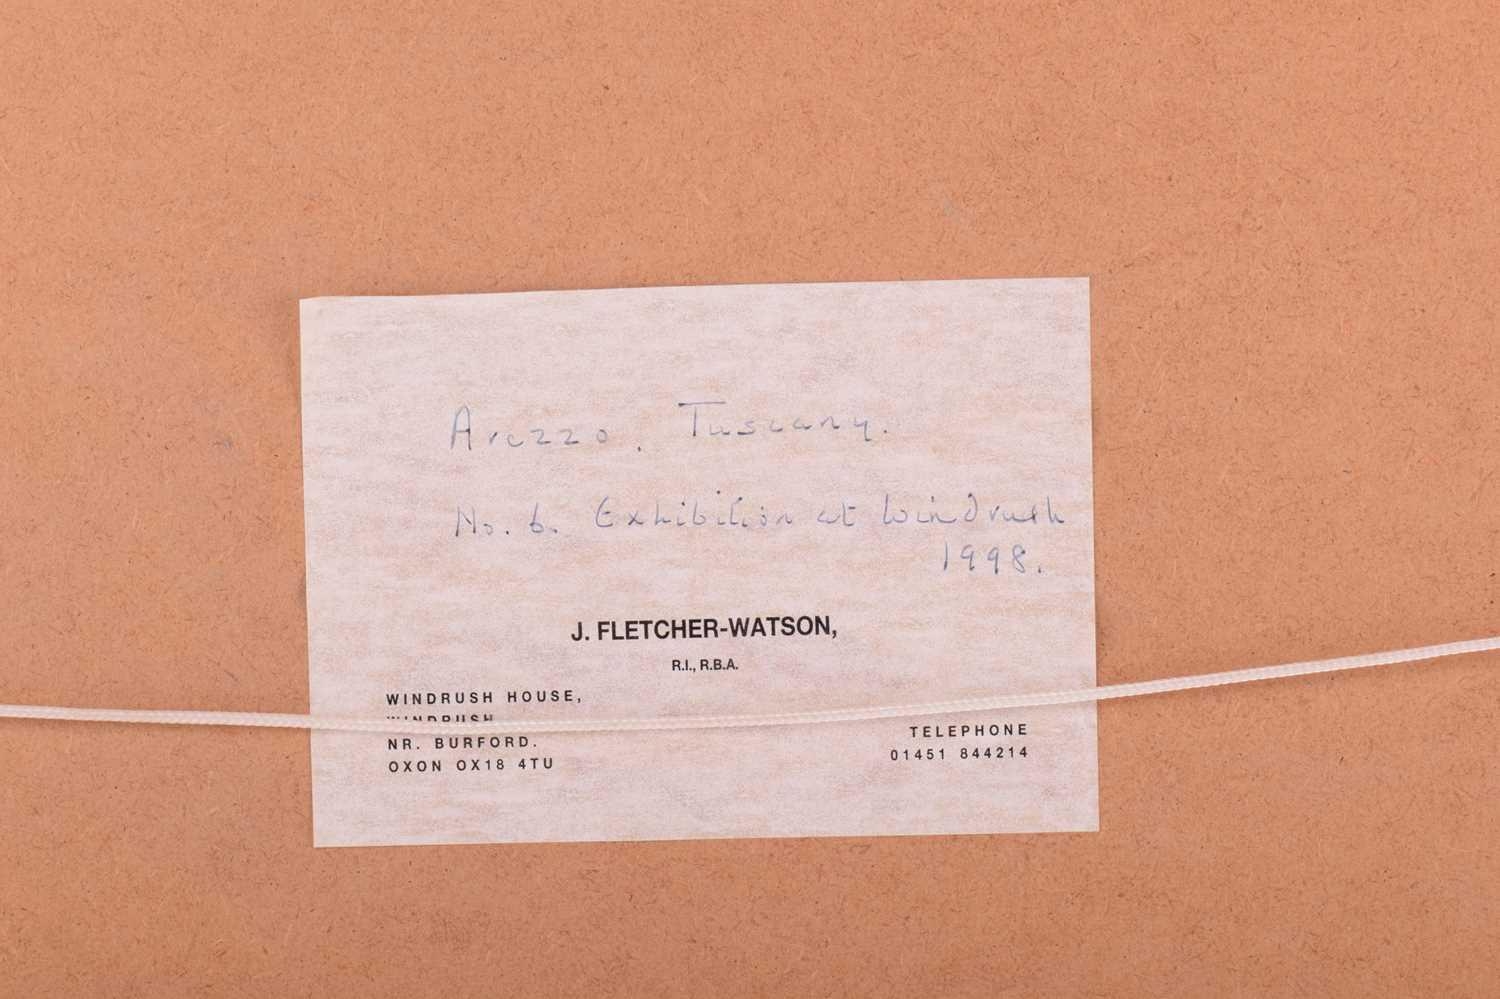 Arezzo, Tuscany.
No. 6. Exhibition at Windrush
1998.
J. FLETCHER-WATSON,
R.I., R.B.A.
WINDRUSH HOUSE,
WINDRUSH
NR. BURFORD.
OXON OX18 4TU
TELEPHONE
01451 844214